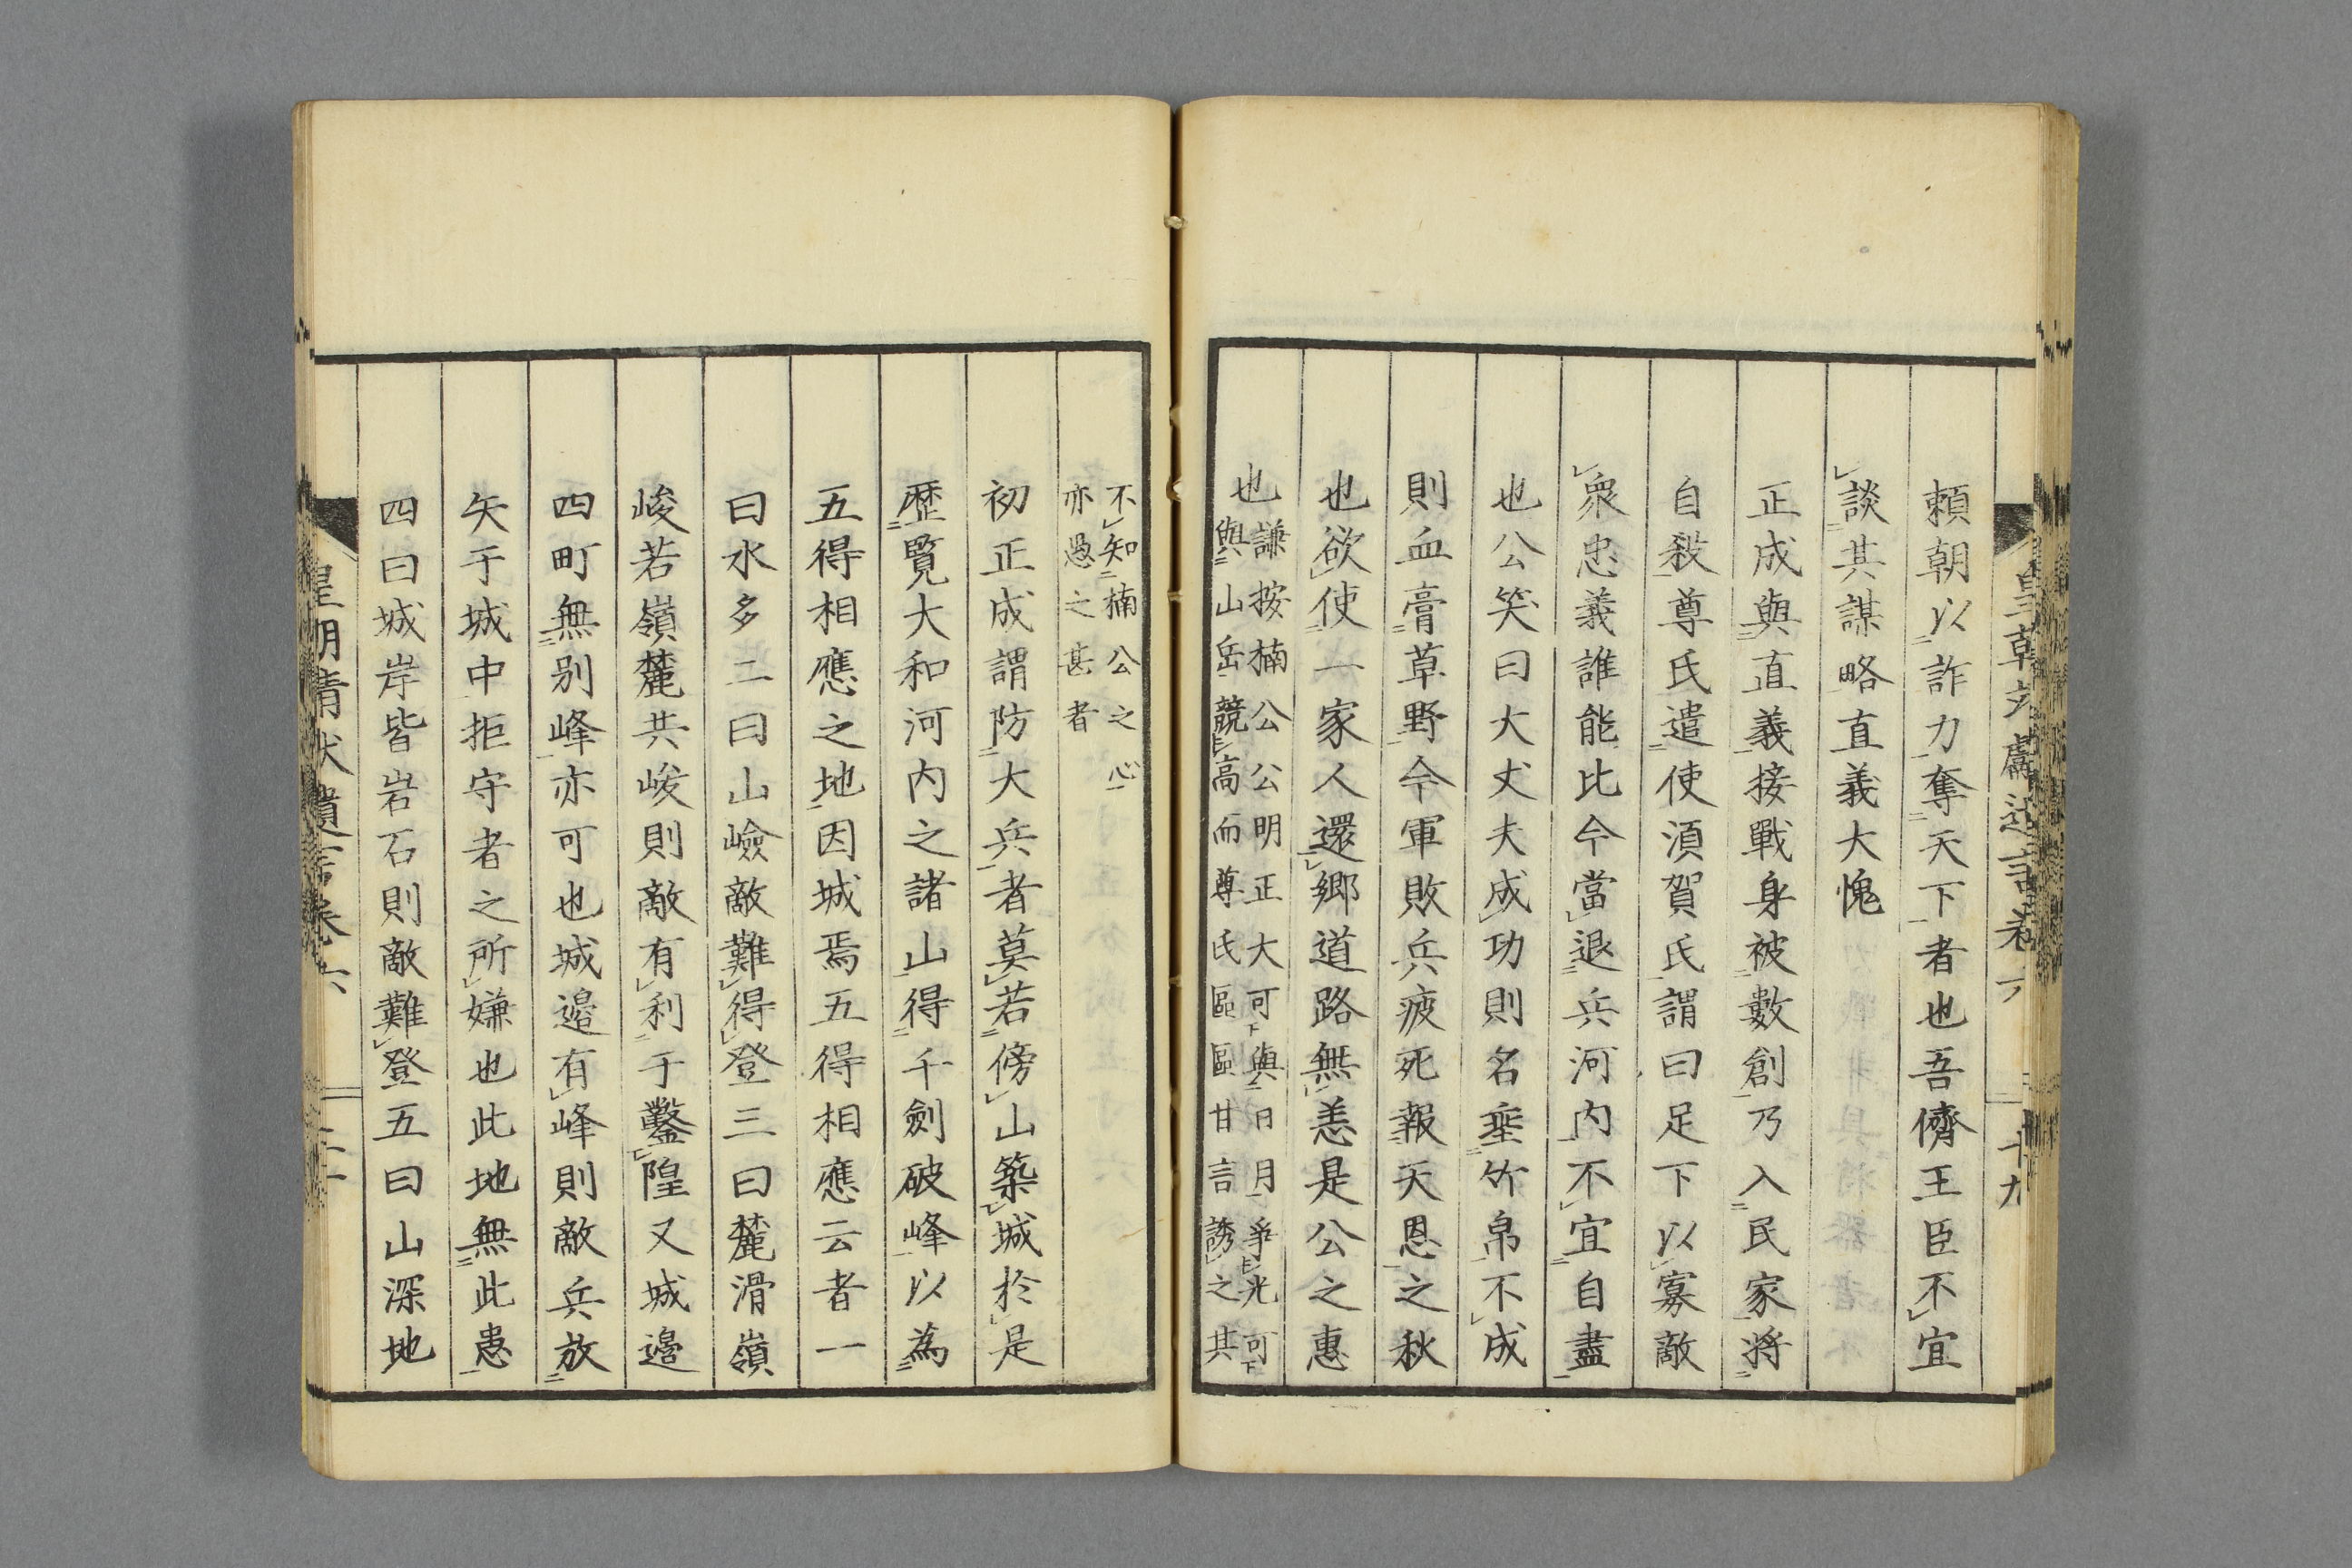 賴朝以詐力奪天下者也吾儕王臣不宜
談其謀略直義大愧
正成與直義接戰身被數創乃入民家將
自殺尊氏遣使須賀氏謂曰足下以寡敵
衆忠義誰能比今當退兵河内不宜自盡
也公笑曰大丈夫成功則名垂竹帛不成
則血膏草野今軍敗兵疲死報天恩之秋
也欲使一家人還郷道路無恙是公之惠
也謙按楠公公明正大可與日月爭光可
與山岳競高而尊氏區區甘言誘之其
不知楠公之心
亦愚之甚者
初正成謂防大兵者莫若傍山築城於是
歷覽大和河内之諸山得千劍破峰以為
五得相應之地因城焉五得相應云者一
曰水多二曰山嶮敵難得登三曰麓滑嶺
峻若嶺麓共峻則敵有利于鑿隍又城邊
四町無別峰亦可也城邊有峰則敵兵放
矢于城中拒守者之所嫌也此地無此患
四曰城岸皆岩石則敵難登五曰山深地